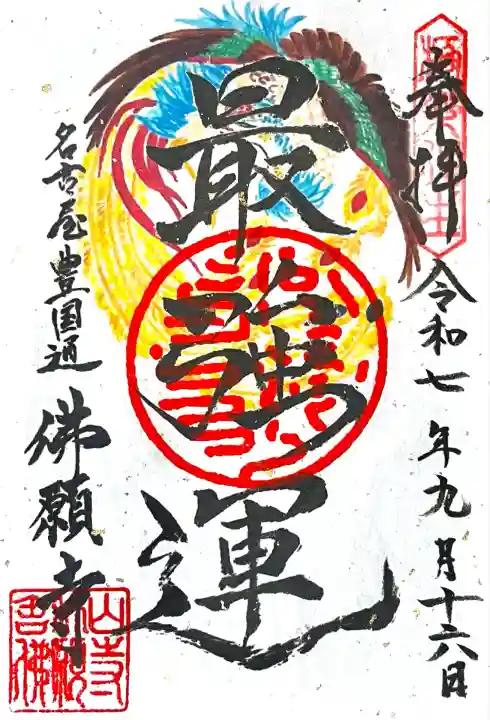 奉拝 令和七年九月十六日
最強運
名古屋豊国通 佛願寺